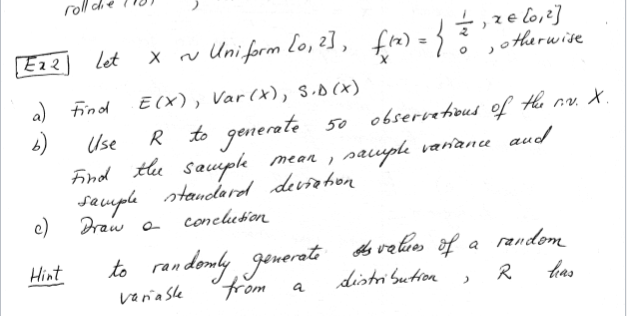 roll die
Ex2 Let X ~ Uniform [0, 2], f_X(x) = { 1/2 , x ∈ [0, 2]
0 , otherwise
a) Find E(X), Var(X), S.D(X)
b) Use R to generate 50 observations of the r.v. X.
Find the sample mean, sample variance and
sample standard deviation
c) Draw a conclusion
Hint to randomly generate values of a random
variable from a distribution, R has